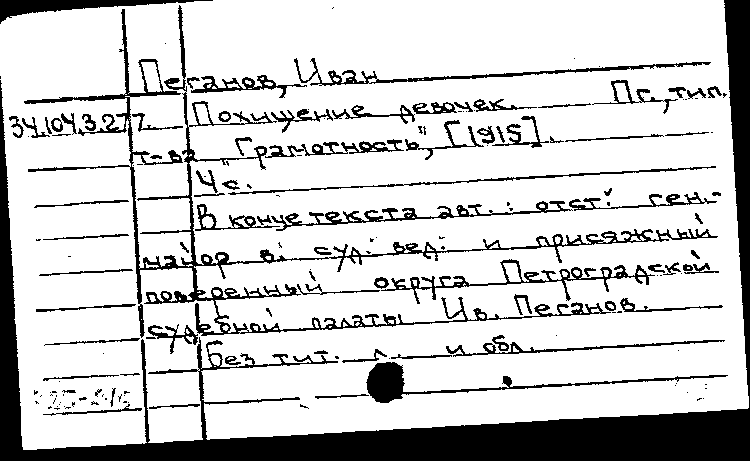 Пеганов, Иван
34.104.3.277. Похищение девочек. Пг., тип.
т-ва „Грамотность", [1915].
4 с.
В конце текста авт.: отст. ген.-
майор в. суд. вед. и присяжный
поверенный округа Петроградской
судебной палаты Ив. Пеганов.
Без тит. л. и обл.